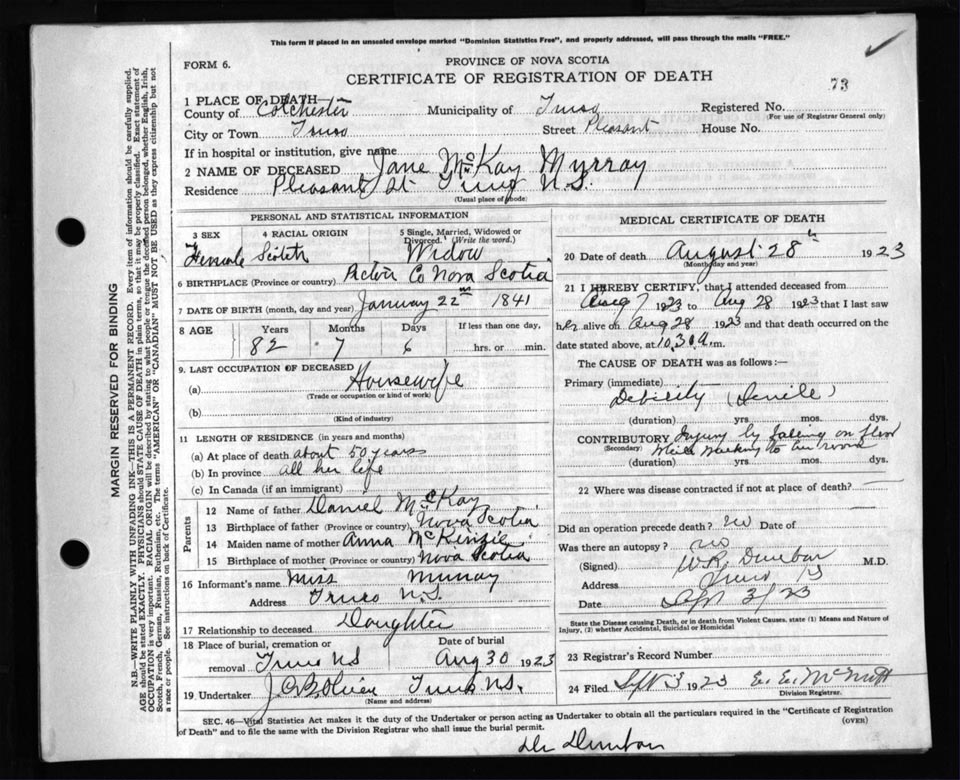 This form if placed in an unsealed envelope marked "Dominion Statistics Free", and properly addressed, will pass through the mails "FREE."
FORM 6.
PROVINCE OF NOVA SCOTIA
CERTIFICATE OF REGISTRATION OF DEATH
73
1 PLACE OF DEATH
County of Colchester Municipality of Truro Registered No.
(For use of Registrar General only)
City or Town Truro Street Pleasant House No.
If in hospital or institution, give name
2 NAME OF DECEASED Jane McKay Murray
Residence Pleasant St Truro N.S.
(Usual place of abode)
PERSONAL AND STATISTICAL INFORMATION
3 SEX 4 RACIAL ORIGIN 5 Single, Married, Widowed or Divorced. (Write the word.)
Female Scotch Widow
6 BIRTHPLACE (Province or country) Pictou Co Nova Scotia
7 DATE OF BIRTH (month, day and year) January 22nd 1841
8 AGE Years Months Days If less than one day,
82 7 6 hrs. or min.
9. LAST OCCUPATION OF DECEASED
(a) Housewife
(Trade or occupation or kind of work)
(b)
(Kind of industry)
11 LENGTH OF RESIDENCE (in years and months)
(a) At place of death about 50 years
(b) In province all her life
(c) In Canada (if an immigrant)
Parents
12 Name of father Daniel McKay
13 Birthplace of father (Province or country) Nova Scotia
14 Maiden name of mother Anna McKenzie
15 Birthplace of mother (Province or country) Nova Scotia
16 Informant's name Miss Murray
Address Truro N.S.
17 Relationship to deceased Daughter
18 Place of burial, cremation or removal Truro NS Date of burial Aug 30 1923
19 Undertaker Truro N.S.
(Name and address)
MEDICAL CERTIFICATE OF DEATH
20 Date of death August 28th 1923
(Month, day and year)
21 I HEREBY CERTIFY, that I attended deceased from
Aug 7 1923 to Aug 28 1923 that I last saw
her alive on Aug 28 1923 and that death occurred on
date stated above, at 10.30 a.m.
The CAUSE OF DEATH was as follows:
Primary (immediate)
Debility (Senile)
(duration) yrs. mos. dys.
CONTRIBUTORY Injury by falling on floor
(Secondary) while walking to her room
(duration) yrs. mos. dys.
22 Where was disease contracted if not at place of death?
Did an operation precede death? no Date of
Was there an autopsy? no
(Signed) W.R. Dunbar M.D.
Address Truro NS
Date Sept 3/23
State the Disease causing Death, or in death from Violent Causes, state (1) Means and Nature of Injury, (2) whether Accidental, Suicidal or Homicidal
23 Registrar's Record Number
24 Filed Sept 3 1923
Division Registrar.
SEC. 46—Vital Statistics Act makes it the duty of the Undertaker or person acting as Undertaker to obtain all the particulars required in the "Certificate of Registration of Death" and to file the same with the Division Registrar who shall issue the burial permit.
(OVER)
Dr Dunbar
MARGIN RESERVED FOR BINDING
N.B—WRITE PLAINLY WITH UNFADING INK—THIS IS A PERMANENT RECORD. Every item of information should be carefully supplied.
AGE should be stated EXACTLY. PHYSICIANS should STATE CAUSE OF DEATH in plain terms, so that it may be properly classified. Exact statement of
OCCUPATION is very important. RACIAL ORIGIN will be described by stating to what people or tongue the deceased person belonged, whether English, Irish,
Scotch, French, German, Russian, Ruthenian, etc. The terms "AMERICAN" OR "CANADIAN" MUST NOT BE USED as they express citizenship but not
a race or people. See instructions on back of Certificate.